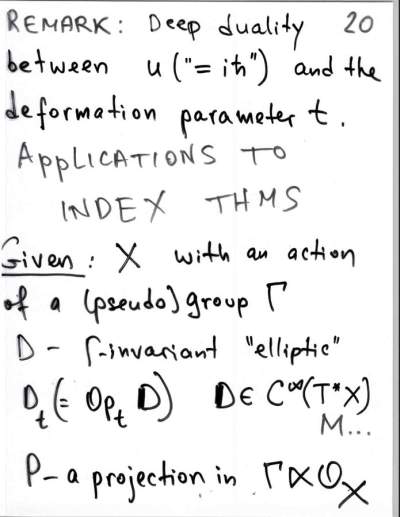 REMARK: Deep duality 20
between u ("= iħ") and the
deformation parameter t.
APPLICATIONS TO
INDEX THMS
Given: X with an action
of a (pseudo)group Γ
D - Γ-invariant "elliptic"
D_t (= Op_t D) D ∈ C^∞(T*X)
M...
P - a projection in Γ⋉O_X